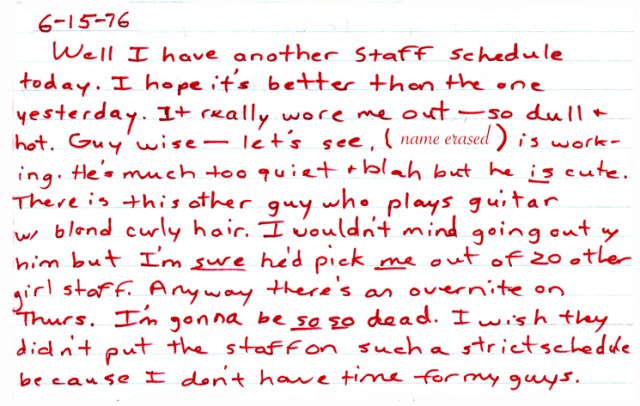 6-15-76
Well I have another Staff schedule
today. I hope it's better than the one
yesterday. It really wore me out — so dull +
hot. Guy wise — let's see, ( name erased ) is work-
ing. He's much too quiet + blah but he is cute.
There is this other guy who plays guitar
w/ blond curly hair. I wouldn't mind going out w/
him but I'm sure he'd pick me out of 20 other
girl staff. Anyway there's an overnite on
Thurs. I'm gonna be so so dead. I wish they
didn't put the staff on such a strict schedule
because I don't have time for my guys.